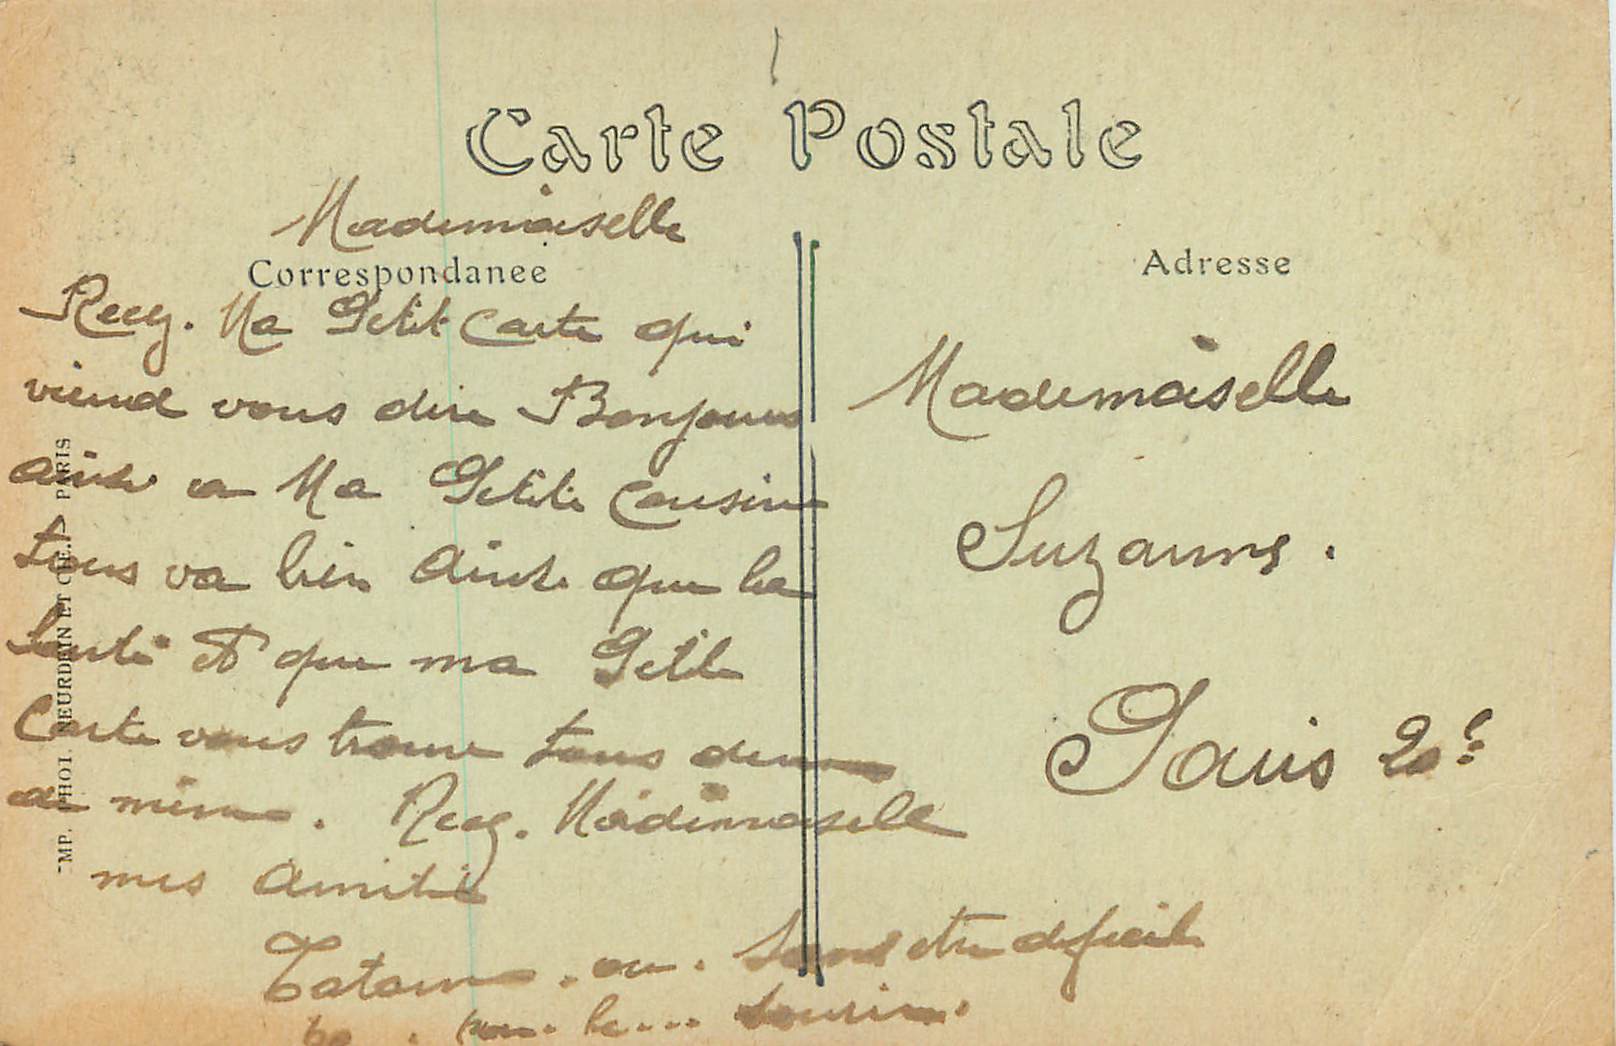 Carte Postale
Mademoiselle
Correspondance
Recg. Ma Petit Carte qui
viend vous dire Bonjour
ainsi a Ma Petite Cousine
tous va bien Ainsi que la
Santé et que ma Petite
Carte vous trouve tous
de même. Recg. Mademoiselle
mes Amitié
ou. Sans etre dificile
Adresse
Mademoiselle
Suzanne.
Paris 20e
IMP. PHOT. NEURDEIN ET CIE. - PARIS